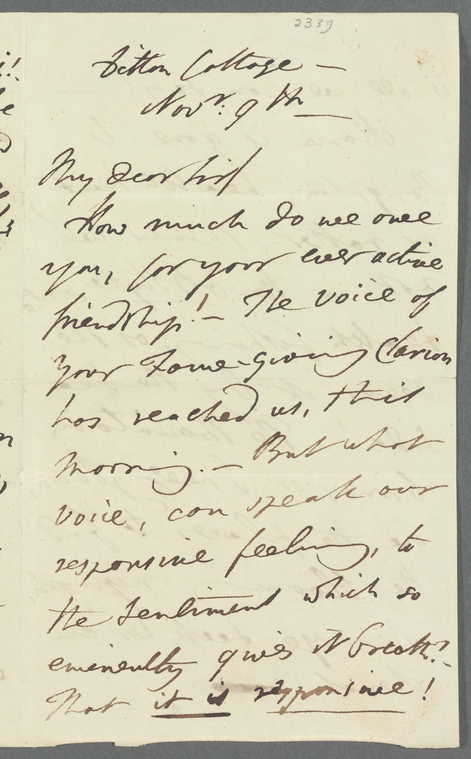 2339
Ditton Cottage —
Novr. 9th —
My dear Sir/
How much do we owe
you, for your ever active
friendship! — The voice of
your Fame-giving Clarion
has reached us, this
morning. — But what
voice, can speak our
responsive feeling, to
the Sentiment which so
eminently gives it breath?
That it is responsive!